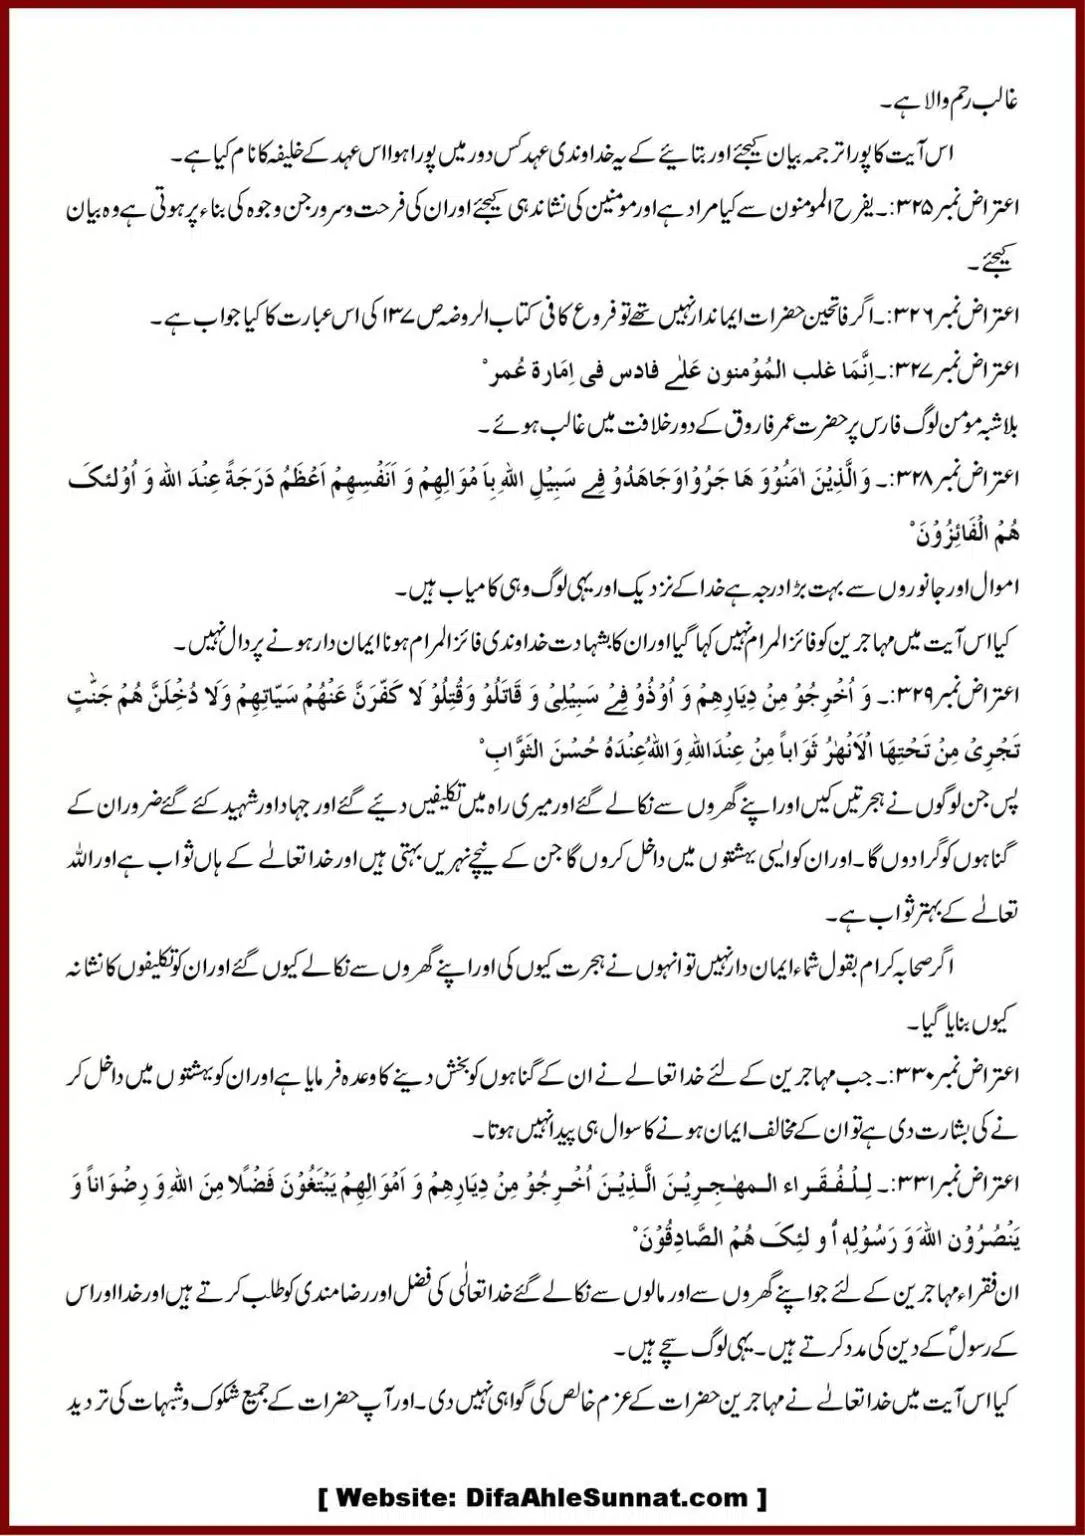 غالب رحم والا ہے۔
اس آیت کا پورا ترجمہ بیان کیجئے اور بتائیے کے یہ خداوندی عہد کس دور میں پورا ہوا اس عہد کے خلیفہ کا نام کیا ہے۔
اعتراض نمبر ۳۲۵:۔ یفرح المومنون سے کیا مراد ہے اور مومنین کی نشاندہی کیجئے اور ان کی فرحت و سرور جن وجوہ کی بناء پر ہوتی ہے وہ بیان
کیجئے۔
اعتراض نمبر ۳۲۶:۔ اگر فاتحین حضرات ایماندار نہیں تھے تو فروع کافی کتاب الروضہ ص ۱۳۷ کی اس عبارت کا کیا جواب ہے۔
اعتراض نمبر ۳۲۷:۔ اِنَّمَا غلب المُؤْمنون عَلٰے فادس فی اِمَارۃ عُمر ْ
بلاشبہ مومن لوگ فارس پر حضرت عمر فاروق کے دور خلافت میں غالب ہوئے۔
اعتراض نمبر ۳۲۸:۔ وَالَّذِیْنَ اٰمَنُوْوَ ھَا جَرُوْاوَجَاھَدُوْ فِے سَبِیْلِ اللہِ بِاَ مْوَالِھِمْ وَ اَنْفُسِھِمْ اَعْظَمُ دَرَجَۃً عِنْدَ اللہ وَ اُوْلئکَ
ھُمْ الْفَائِزُوْنَ ْ
اموال اور جانوروں سے بہت بڑا درجہ ہے خدا کے نزدیک اور یہی لوگ وہی کامیاب ہیں۔
کیا اس آیت میں مہاجرین کو فائز المرام نہیں کہا گیا اور ان کا بشہادت خداوندی فائز المرام ہونا ایمان دار ہونے پر دال نہیں۔
اعتراض نمبر ۳۲۹:۔ وَ اُخْرِجُوْ مِنْ دِیَارِھِمْ وَ اُوْذُوْ فِےْ سَبِیْلِیْ وَ قَاتَلُوْ وَقُتِلُوْ لَا کَفِّرَنَّ عَنْھُمْ سَیّاتِھِمْ وَلَا دُخْلَنَّ ھُمْ جَنّٰتٍ
تَجْرِیْ مِنْ تَحْتِھَا الْاَنْھٰرُ ثَوَاباً مِنْ عِنْدَاللہِ وَاللہُ عِنْدَہُ حُسْنَ الثَّوَّابِ ْ
پس جن لوگوں نے ہجرتیں کیں اور اپنے گھروں سے نکالے گئے اور میری راہ میں تکلیفیں دئیے گئے اور جہاد اور شہید کئے گئے ضرور ان کے
گناہوں کو گرا دوں گا۔ اور ان کو ایسی بہشتوں میں داخل کروں گا جن کے نیچے نہریں بہتی ہیں اور خدا تعالٰے کے ہاں ثواب ہے اور اللہ
تعالٰے کے بہتر ثواب ہے۔
اگر صحابہ کرام بقول شماء ایمان دار نہیں تو انہوں نے ہجرت کیوں کی اور اپنے گھروں سے نکالے کیوں گئے اور ان کو تکلیفوں کا نشانہ
کیوں بنایا گیا۔
اعتراض نمبر ۳۳۰:۔ جب مہاجرین کے لئے خدا تعالے نے ان کے گناہوں کو بخش دینے کا وعدہ فرمایا ہے اور ان کو بہشتوں میں داخل کر
نے کی بشارت دی ہے تو ان کے مخالف ایمان ہونے کا سوال ہی پیدا نہیں ہوتا۔
اعتراض نمبر ۳۳۱:۔ لِلْفُقَرَاء المھٰجِرِیْنَ الَّذِیْنَ اُخْرِجُوْ مِنْ دِیَارِھِمْ وَ اَمْوَالِھِمْ یَبْتَغُوْنَ فَضْلًا مِنَ اللہِ وَ رِضْوَاناً وَ
یَنْصُرُوْن اللہَ وَ رَسُوْلِہٖ اُو لئِکَ ھُمْ الصَّادِقُوْنَ ْ
ان فقراء مہاجرین کے لئے جو اپنے گھروں سے اور مالوں سے نکالے گئے خدا تعالٰی کی فضل اور رضا مندی کو طلب کرتے ہیں اور خدا اور اس
کے رسولؐ کے دین کی مدد کرتے ہیں۔ یہی لوگ سچے ہیں۔
کیا اس آیت میں خدا تعالٰے نے مہاجرین حضرات کے عزم خالص کی گواہی نہیں دی۔ اور آپ حضرات کے جمیع شکوک و شبہات کی تردید
[ Website: DifaAhleSunnat.com ]